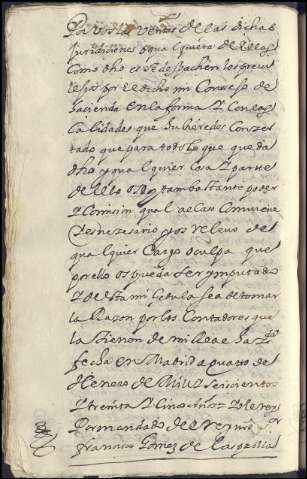 para las ventas de las dichas
jurisdiciones o qualquiera de ellas
como dho es se despachen los
por el dicho mi Consejo de
Hacienda en la forma y con las
calidades que hubieredes conçer
tado que para todo lo que queda
dho y qualquier cosa y parte
de ello os doy tan bastante poder
y comision qual al caso conviene
y es necesario y os relevo de
qualquier cargo o culpa que
por ello os pueda ser ymputado
y de esta mi cedula sea de tomar
la Razon por los Contadores que
la tienen de mi Real haz.da
fecha en Madrid a quatro de
Henero de mill y seiscientos
y treinta y cinco años yo el rey
Por mandado del rey nro s.or